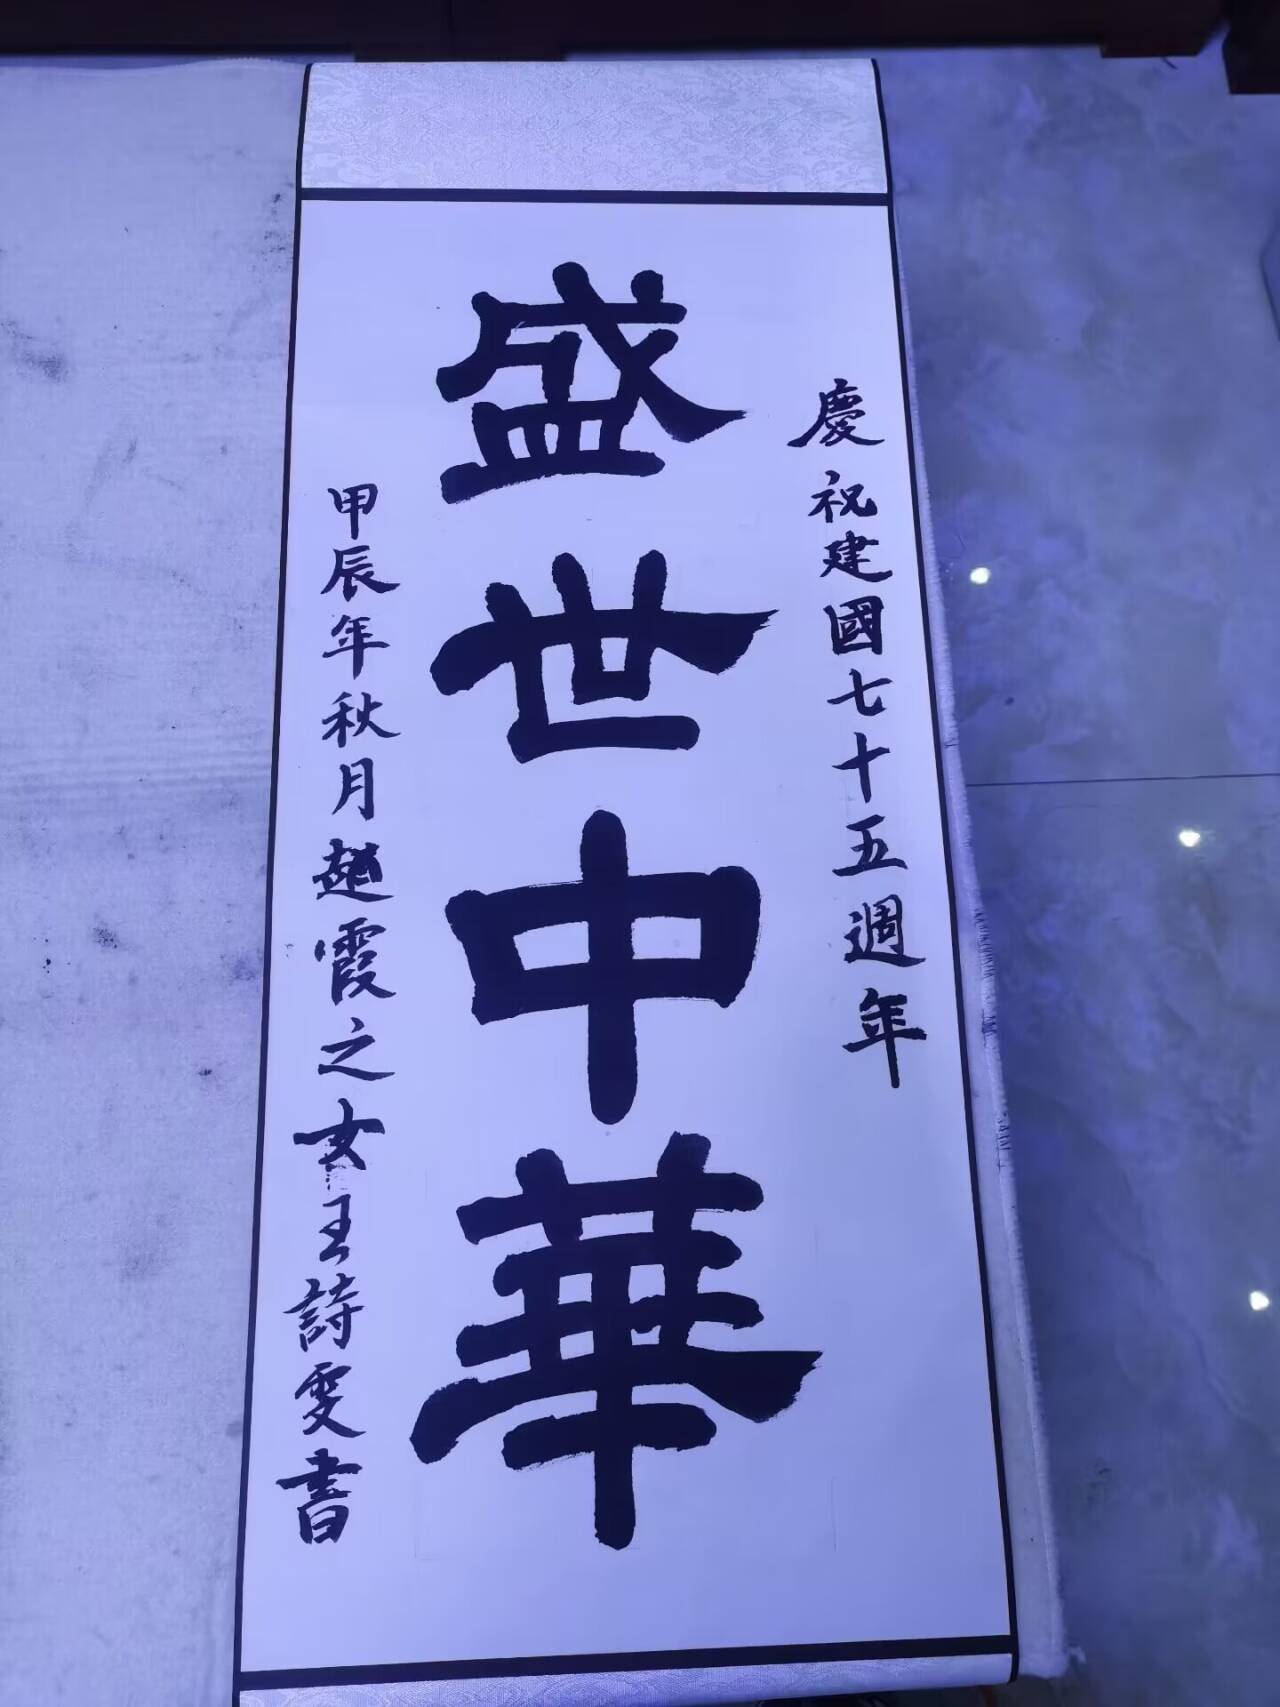 慶祝建國七十五週年
盛世中華
甲辰年秋月趙霞之女王詩雯書